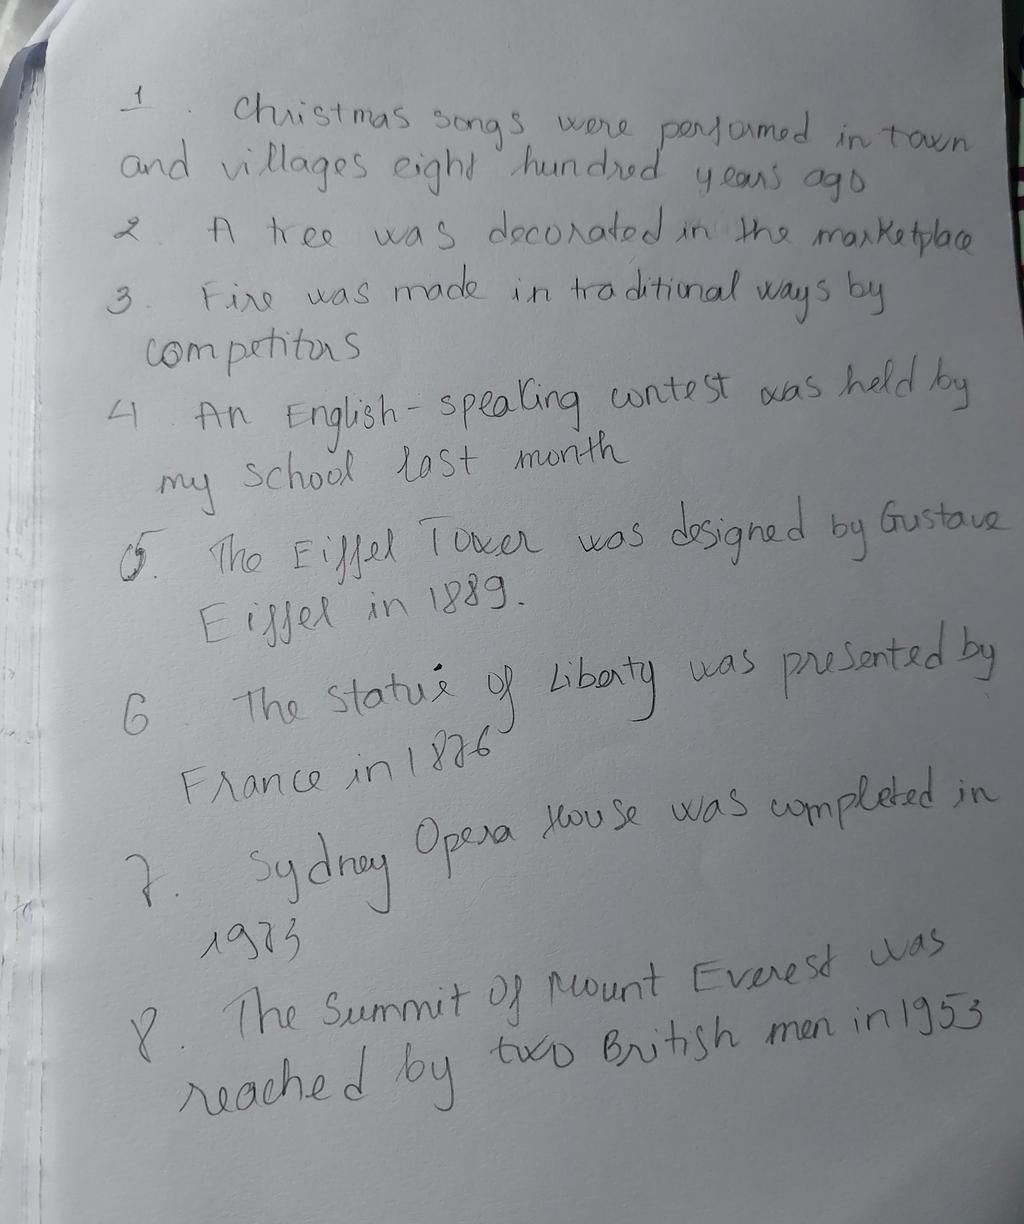 1. Christmas songs were performed in town
and villages eight hundred years ago
2 A tree was decorated in the marketplace
3. Fire was made in traditional ways by
competitors
4. An English-speaking contest was held by
my school last month
5. The Eiffel Tower was designed by Gustave
Eiffel in 1889.
6. The Statue of Liberty was presented by
France in 1876
7. Sydney Opera House was completed in
1973
8. The Summit Of Mount Everest was
reached by two British men in 1953